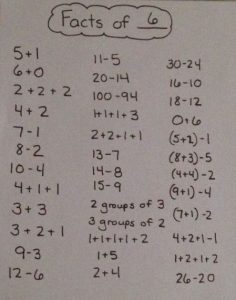 Facts of 6
5+1
6+0
2+2+2
4+2
7-1
8-2
10-4
4+1+1
3+3
3+2+1
9-3
12-6
11-5
20-14
100-94
1+1+1+3
2+2+1+1
13-7
14-8
15-9
2 groups of 3
3 groups of 2
1+1+1+1+2
1+5
2+4
30-24
16-10
18-12
0+6
(5+2)-1
(8+3)-5
(4+4)-2
(9+1)-4
(7+1)-2
4+2+1-1
1+2+1+2
26-20